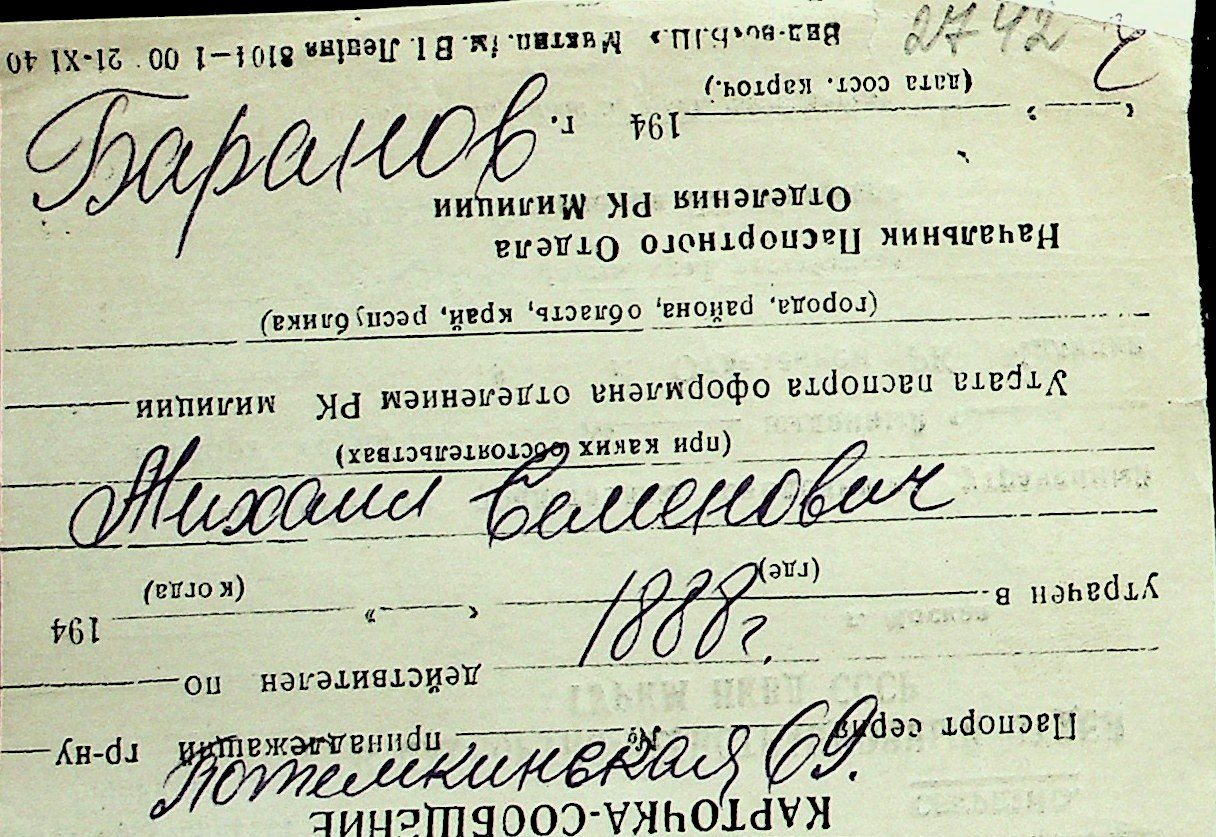 2742
Баранов
Михаил Семенович
1888г.
Потемкинская 69.
КАРТОЧКА-СООБЩЕНИЕ
Паспорт серия № принадлежащий гр-ну
действителен по
утрачен в « » 194
(где) (когда)
(при каких обстоятельствах)
Утрата паспорта оформлена отделением РК милиции
(города, района, область, край, республика)
Начальник Паспортного Отдела
Отделения РК Милиции
« » 194 г.
(дата сост. карточ.)
ім. В І. Леніна 21-XI 40